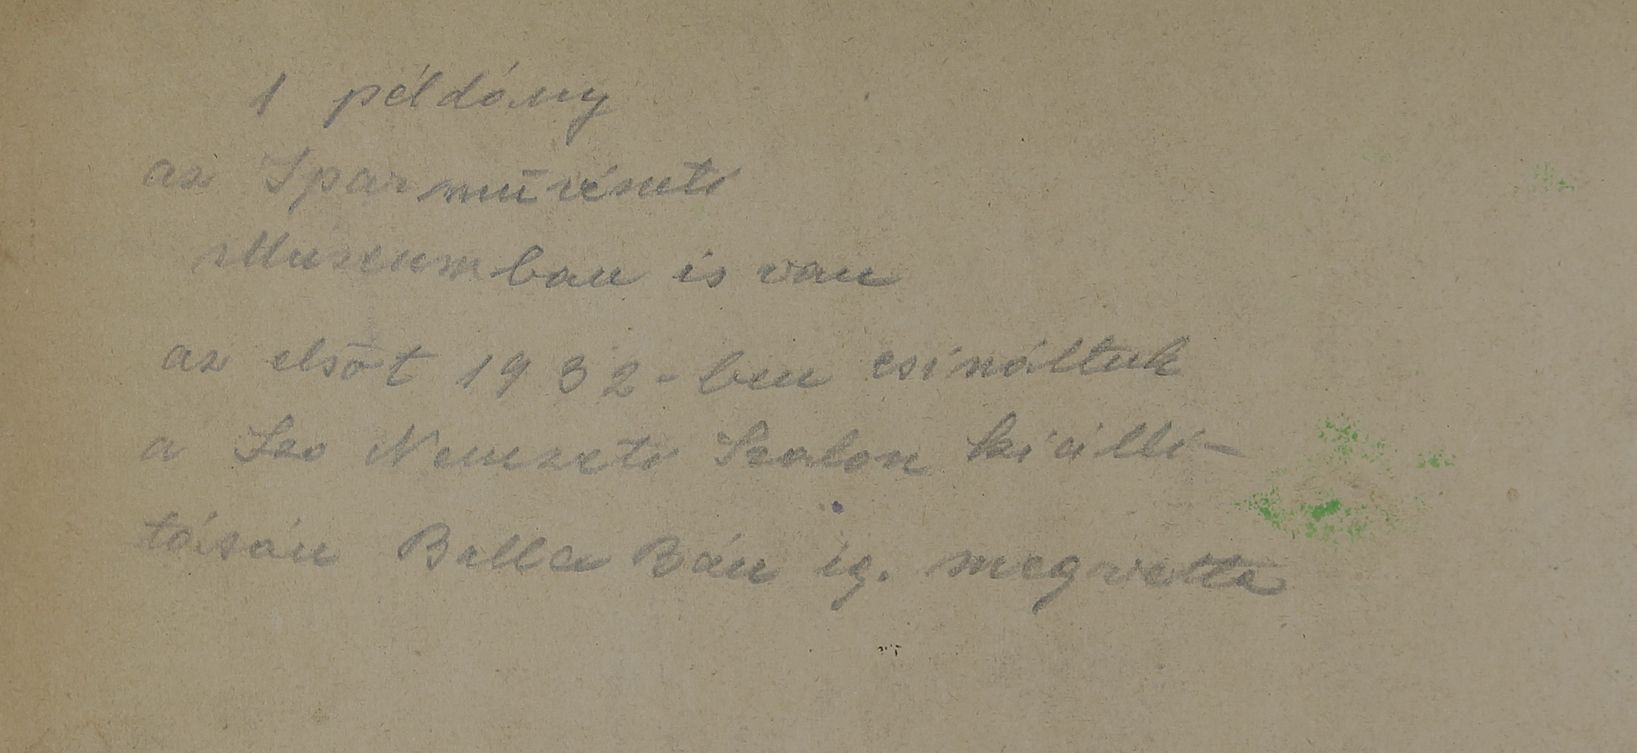 1 példány
az Iparművészeti
Museumban is van
az elsőt 1932-ben csináltuk
a Nemzeti Szalon kiállí-
tásán Bella Bán ig. megvette